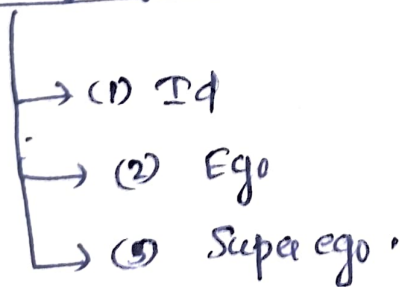 (1) Id
(2) Ego
(3) Super ego.